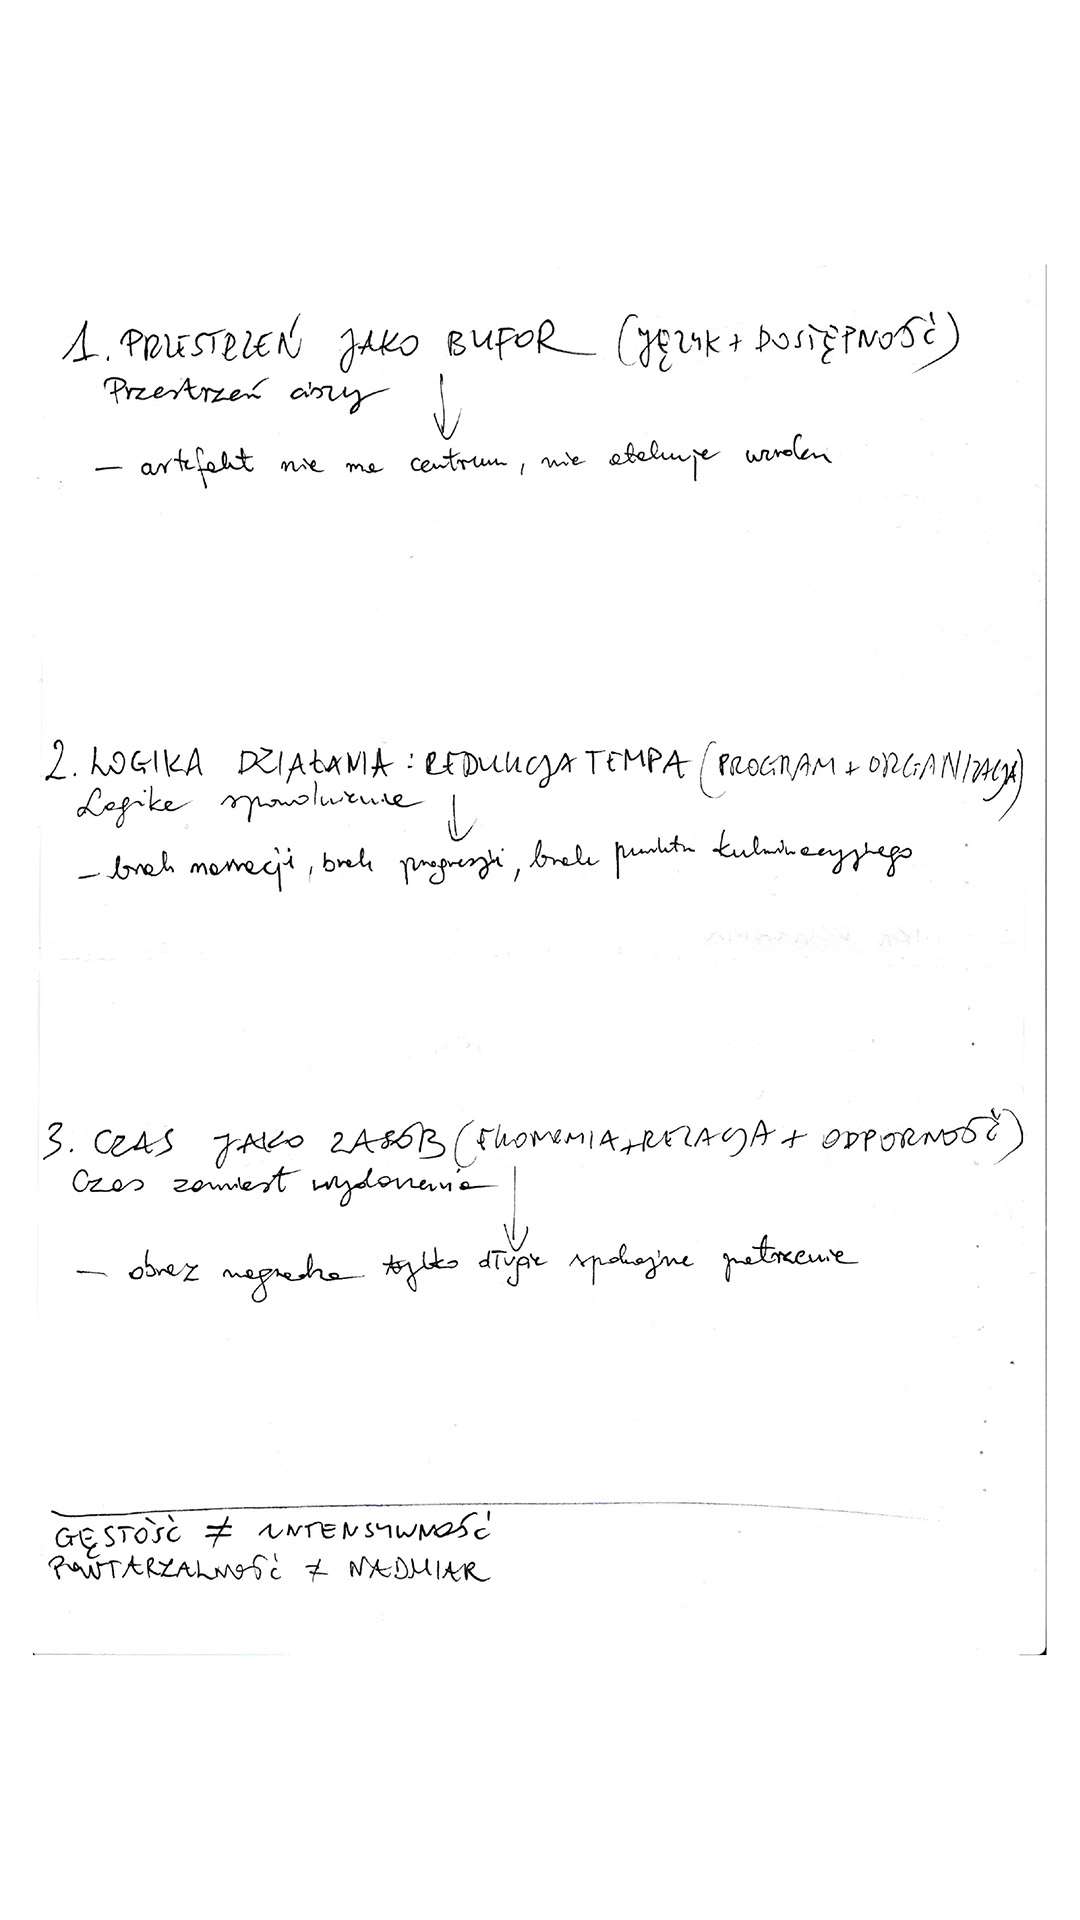 1. PRZESTRZEŃ JAKO BUFOR (JĘZYK + DOSTĘPNOŚĆ)
Przestrzeń ciszy
— artefakt nie ma centrum, nie atakuje wzroku
2. LOGIKA DZIAŁANIA: REDUKCJA TEMPA (PROGRAM + ORGANIZACJA)
Logika spowolnienia
— brak narracji, brak progresji, brak punktu kulminacyjnego
3. CZAS JAKO ZASÓB (EKONOMIA + RELACJA + ODPORNOŚĆ)
Czas zamiast wydarzenia
— obraz nagradza tylko długie spokojne patrzenie
GĘSTOŚĆ ≠ INTENSYWNOŚĆ
POWTARZALNOŚĆ ≠ NADMIAR